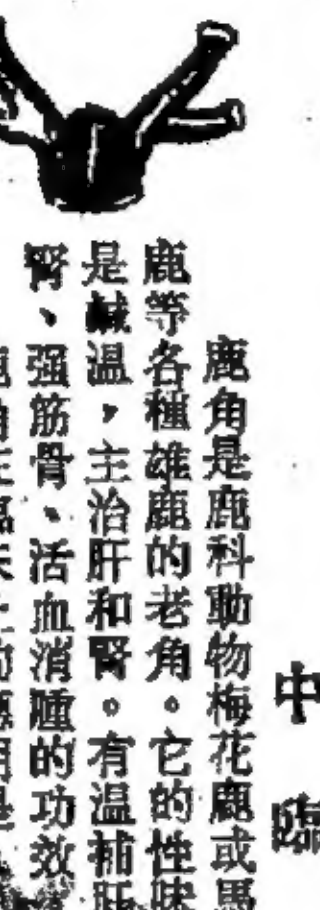 中 臨
鹿角是鹿科動物梅花鹿或馬
鹿等各種雄鹿的老角。它的性味
是鹹温，主治肝和腎。有温補肝
腎、强筋骨、活血消腫的功效